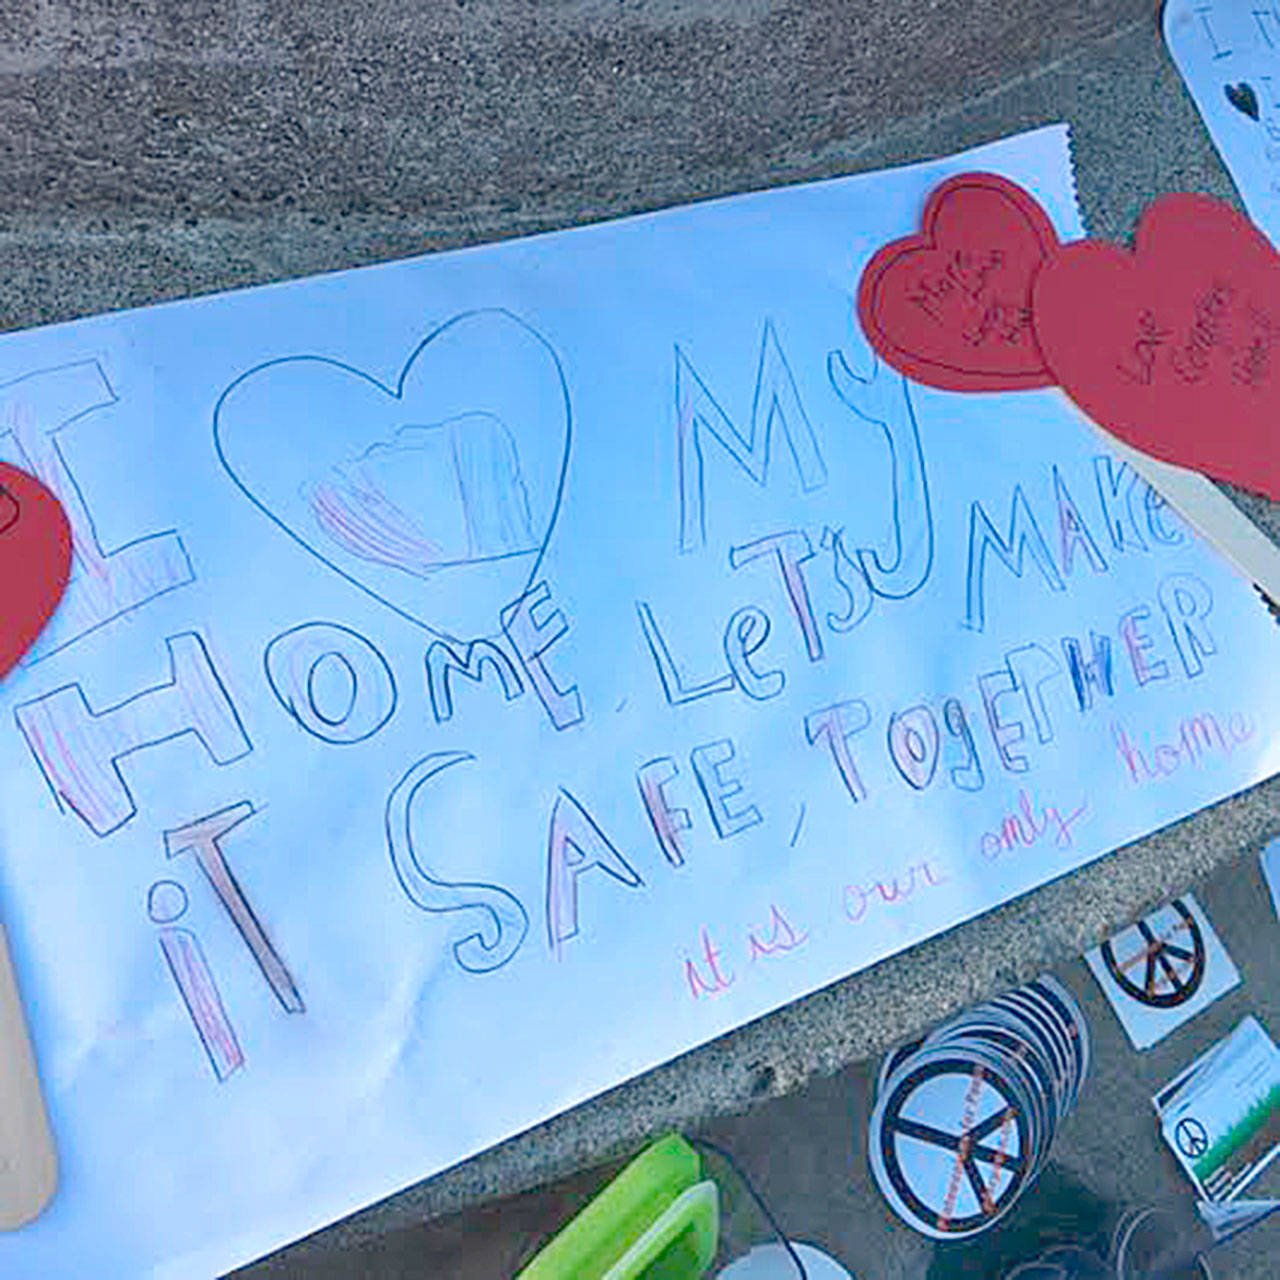 I ♥ MY
HOME, LeT'S MAKe
iT SAFE, TOgETHER
it is our only home
Make
Love